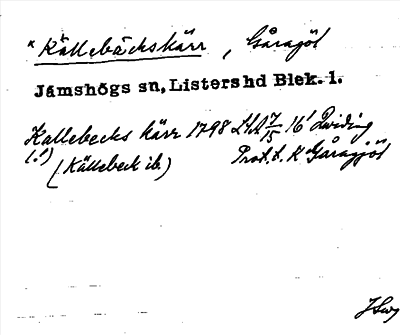 * Källebäckskärr, Gåragöl
Jämshögs sn, Listers hd Blek. l.
Kallebecks kärr 1798 LSA 7/15 16' Delning
(!) (Källebeck ib.) Prot. t. K Gåragöl